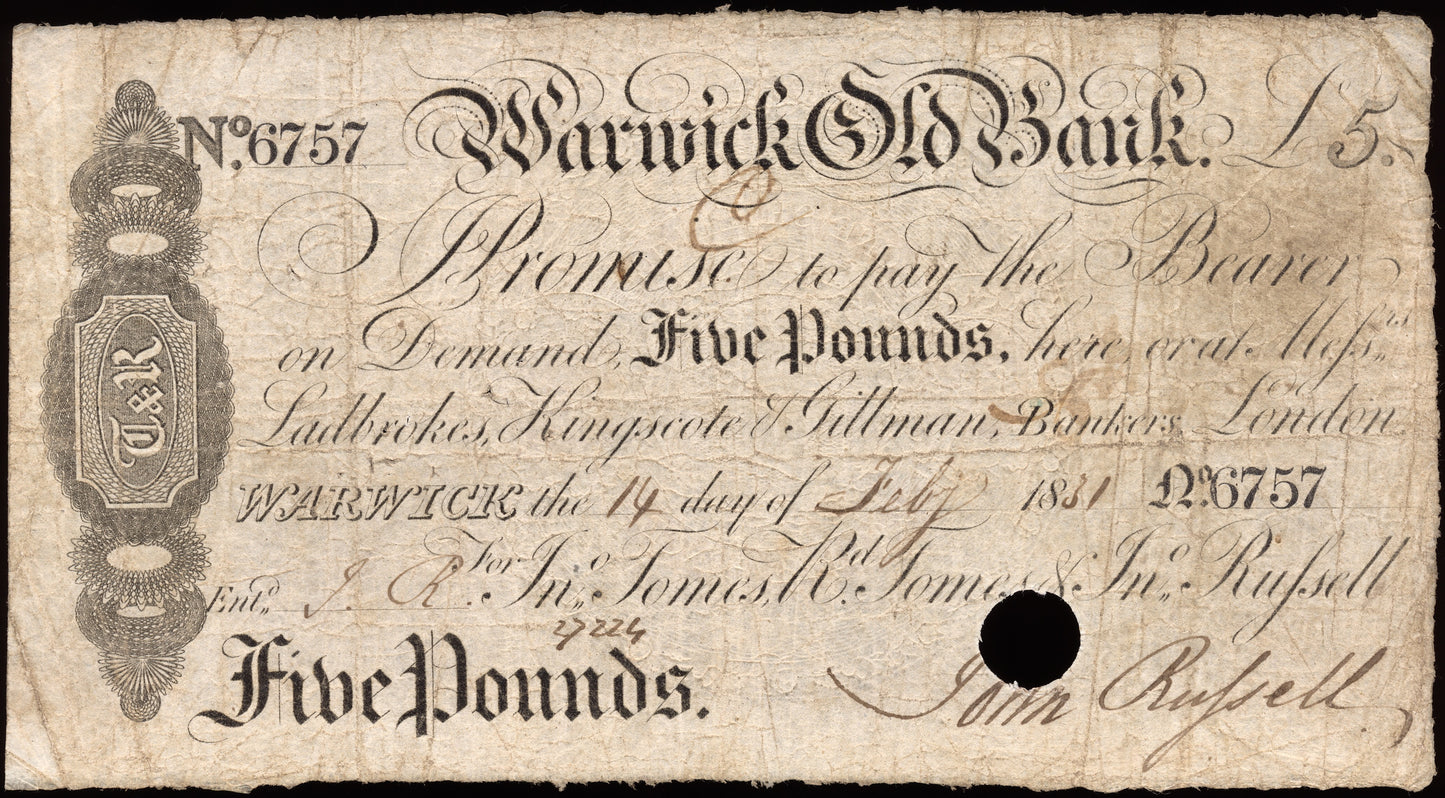 No. 6757 Warwick Old Bank. £5.
I Promise to pay the Bearer
on Demand, Five Pounds, here or at Messrs
Ladbrokes, Kingscote & Gillman, Bankers London
WARWICK the 14 day of Feby 1831 No. 6757
For Jno. Tomes, Rd. Tomes & Jno. Russell
Entd. J. R.
27224
Five Pounds.
John Russell
T&R